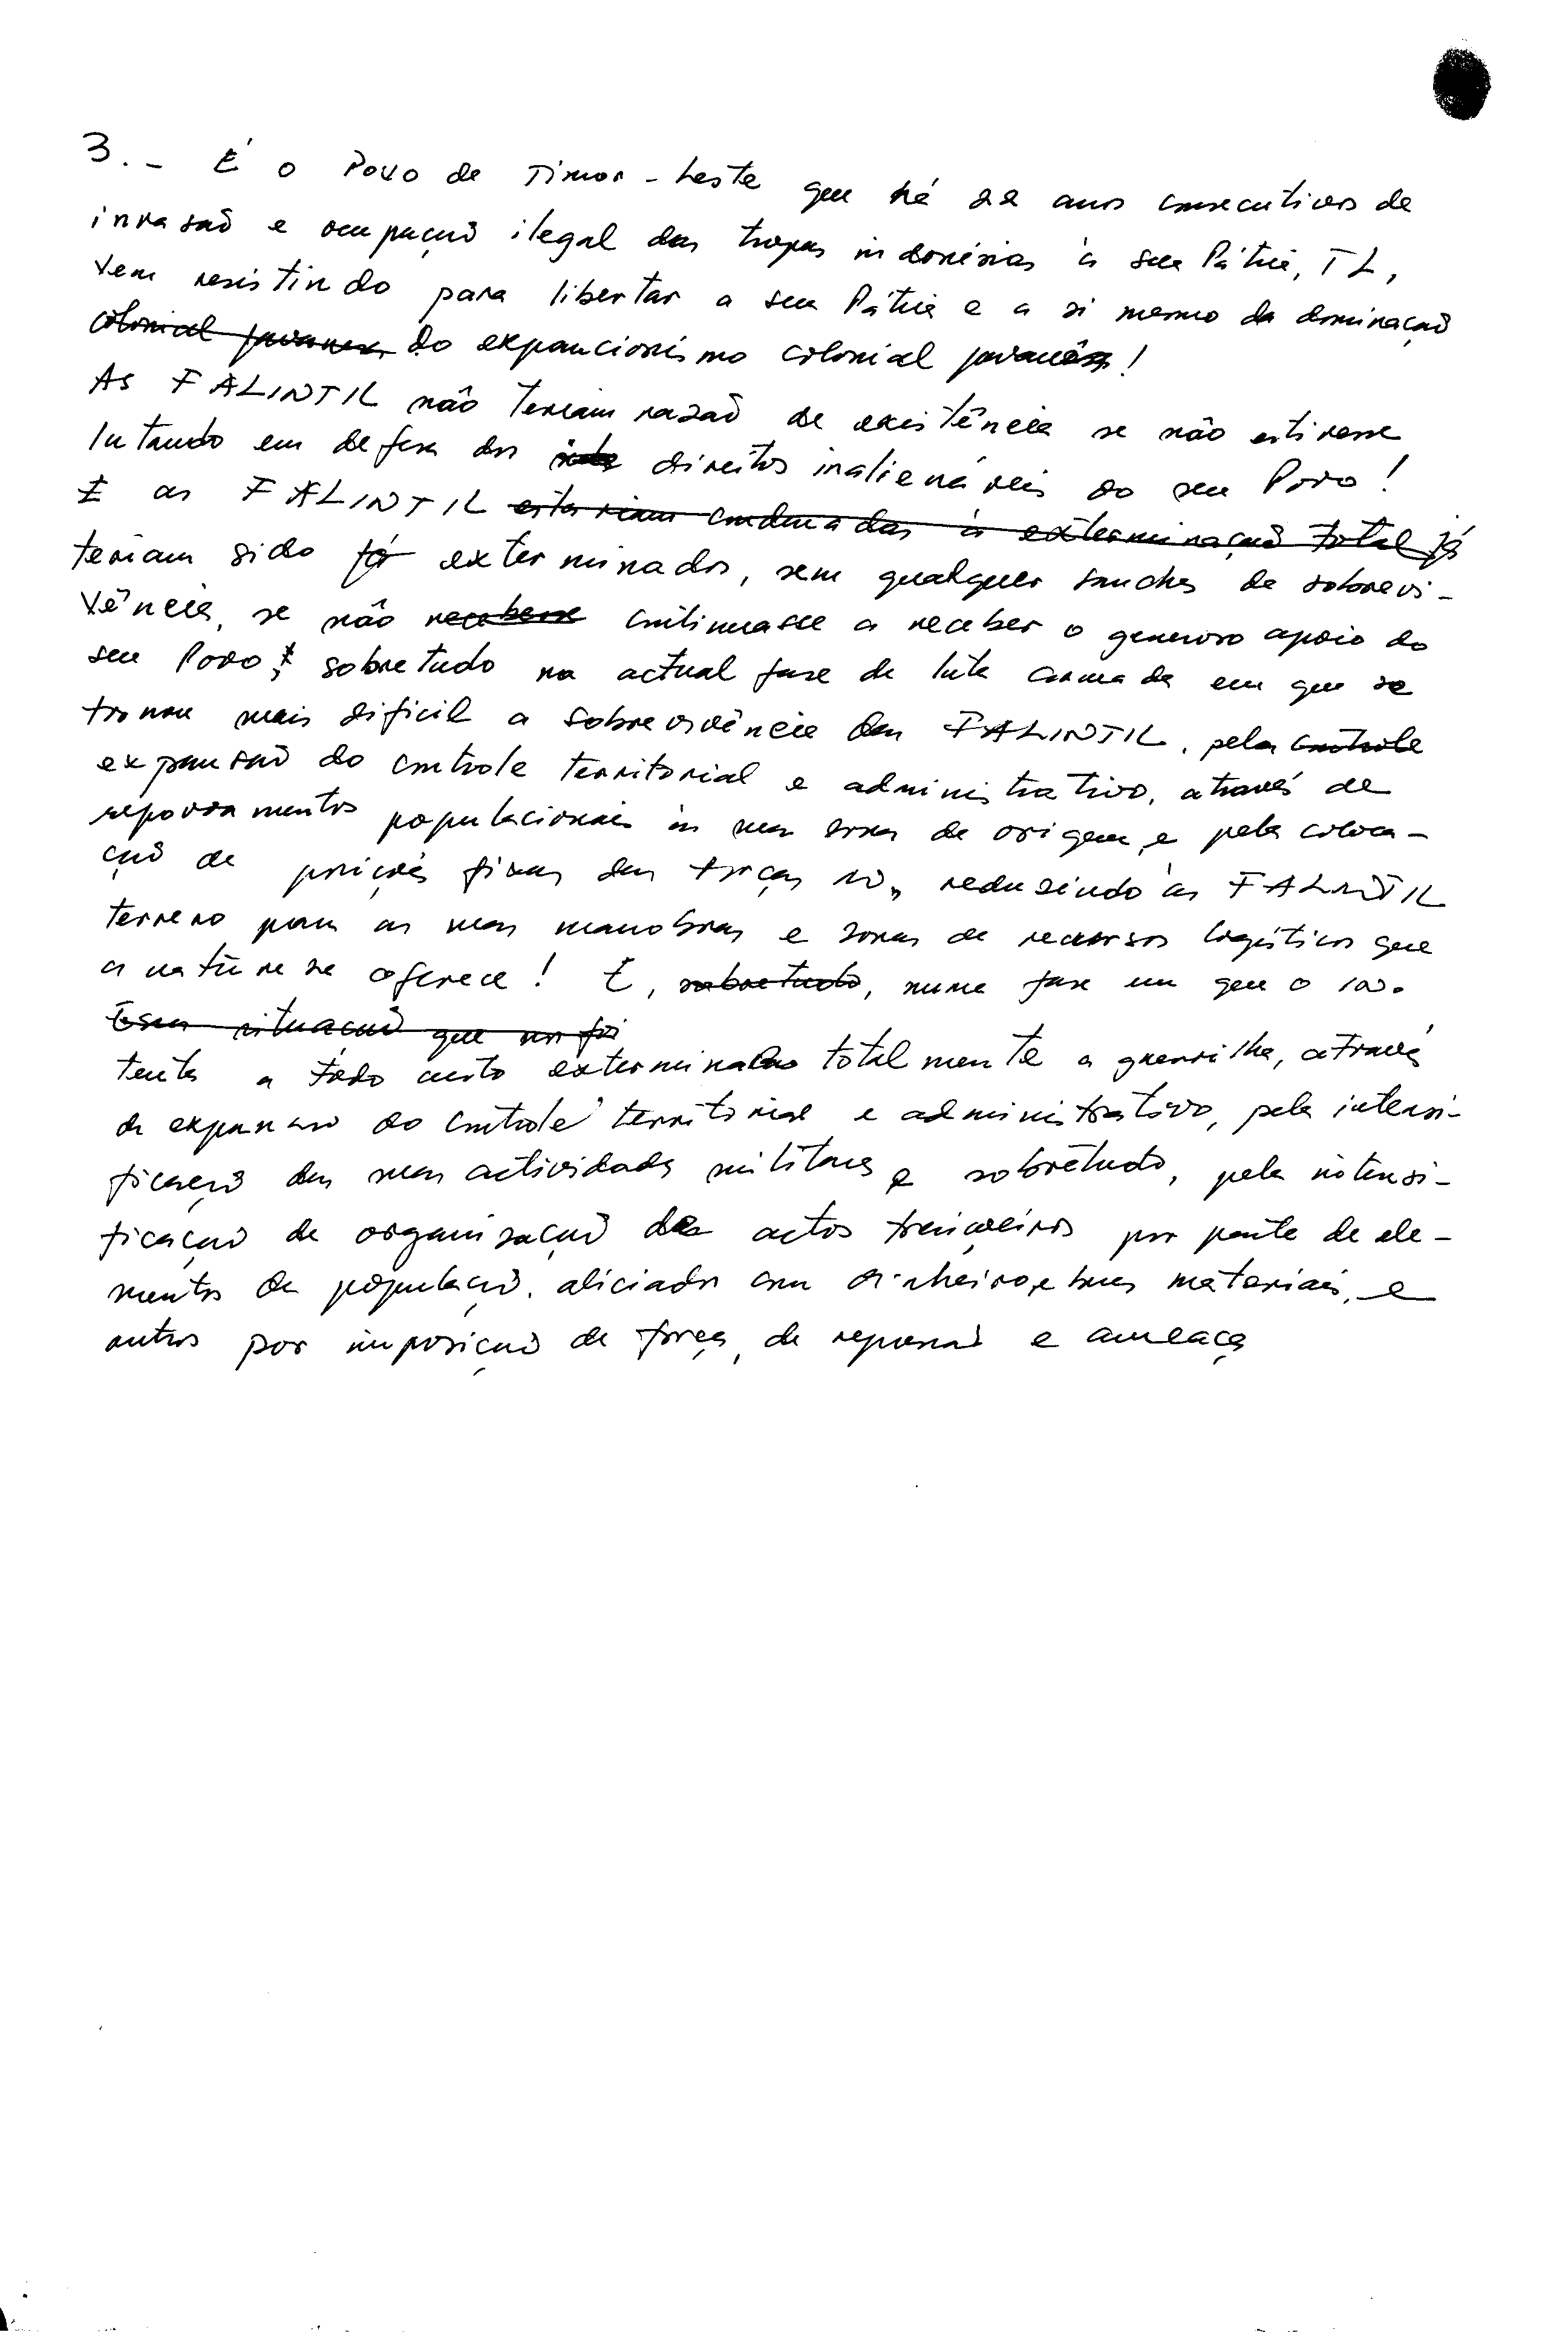 3.- É o Povo de Timor-Leste que há 22 anos consecutivos de
invasão e ocupação ilegal das tropas indonésias à sua Pátria, TL,
vem resistindo para libertar a sua Pátria e a si mesmo da dominação
colonial javanesa do expancionismo colonial javanês!
As FALINTIL não teriam razão de existência se não estivesse
lutando em defesa dos direitos inalienáveis do seu Povo!
E as FALINTIL estariam condenadas à exterminação total já
teriam sido já exterminados, sem qualquer sanches de sobrevi-
vência, se não recebesse continuasse a receber o generoso apoio do
seu Povo, sobretudo na actual fase de luta armada em que se
tronou mais difícil a sobrevivência das FALINTIL, pela controle
expansão do controle territorial e administrativo, através de
repovoamentos populacionais às suas zonas de origem, e pela coloca-
ção de posições fixas das forças in., reduzindo às FALINTIL
terreno para as suas manobras e zonas de recursos logísticos que
a natureza oferece! E, sobretudo, numa fase em que o in.
Essa situação que nos foi
tenta a todo custo exterminar totalmente a guerrilha, através
da expansão do controle territorial e administrativo, pela intensi-
ficação das suas actividades militares e sobretudo, pela intensi-
ficação de organização de actos traiçoeiros por parte de ele-
mentos da população, aliciados com dinheiro, e bens materiais, e
outros por imposição de força, de repressão e ameaça